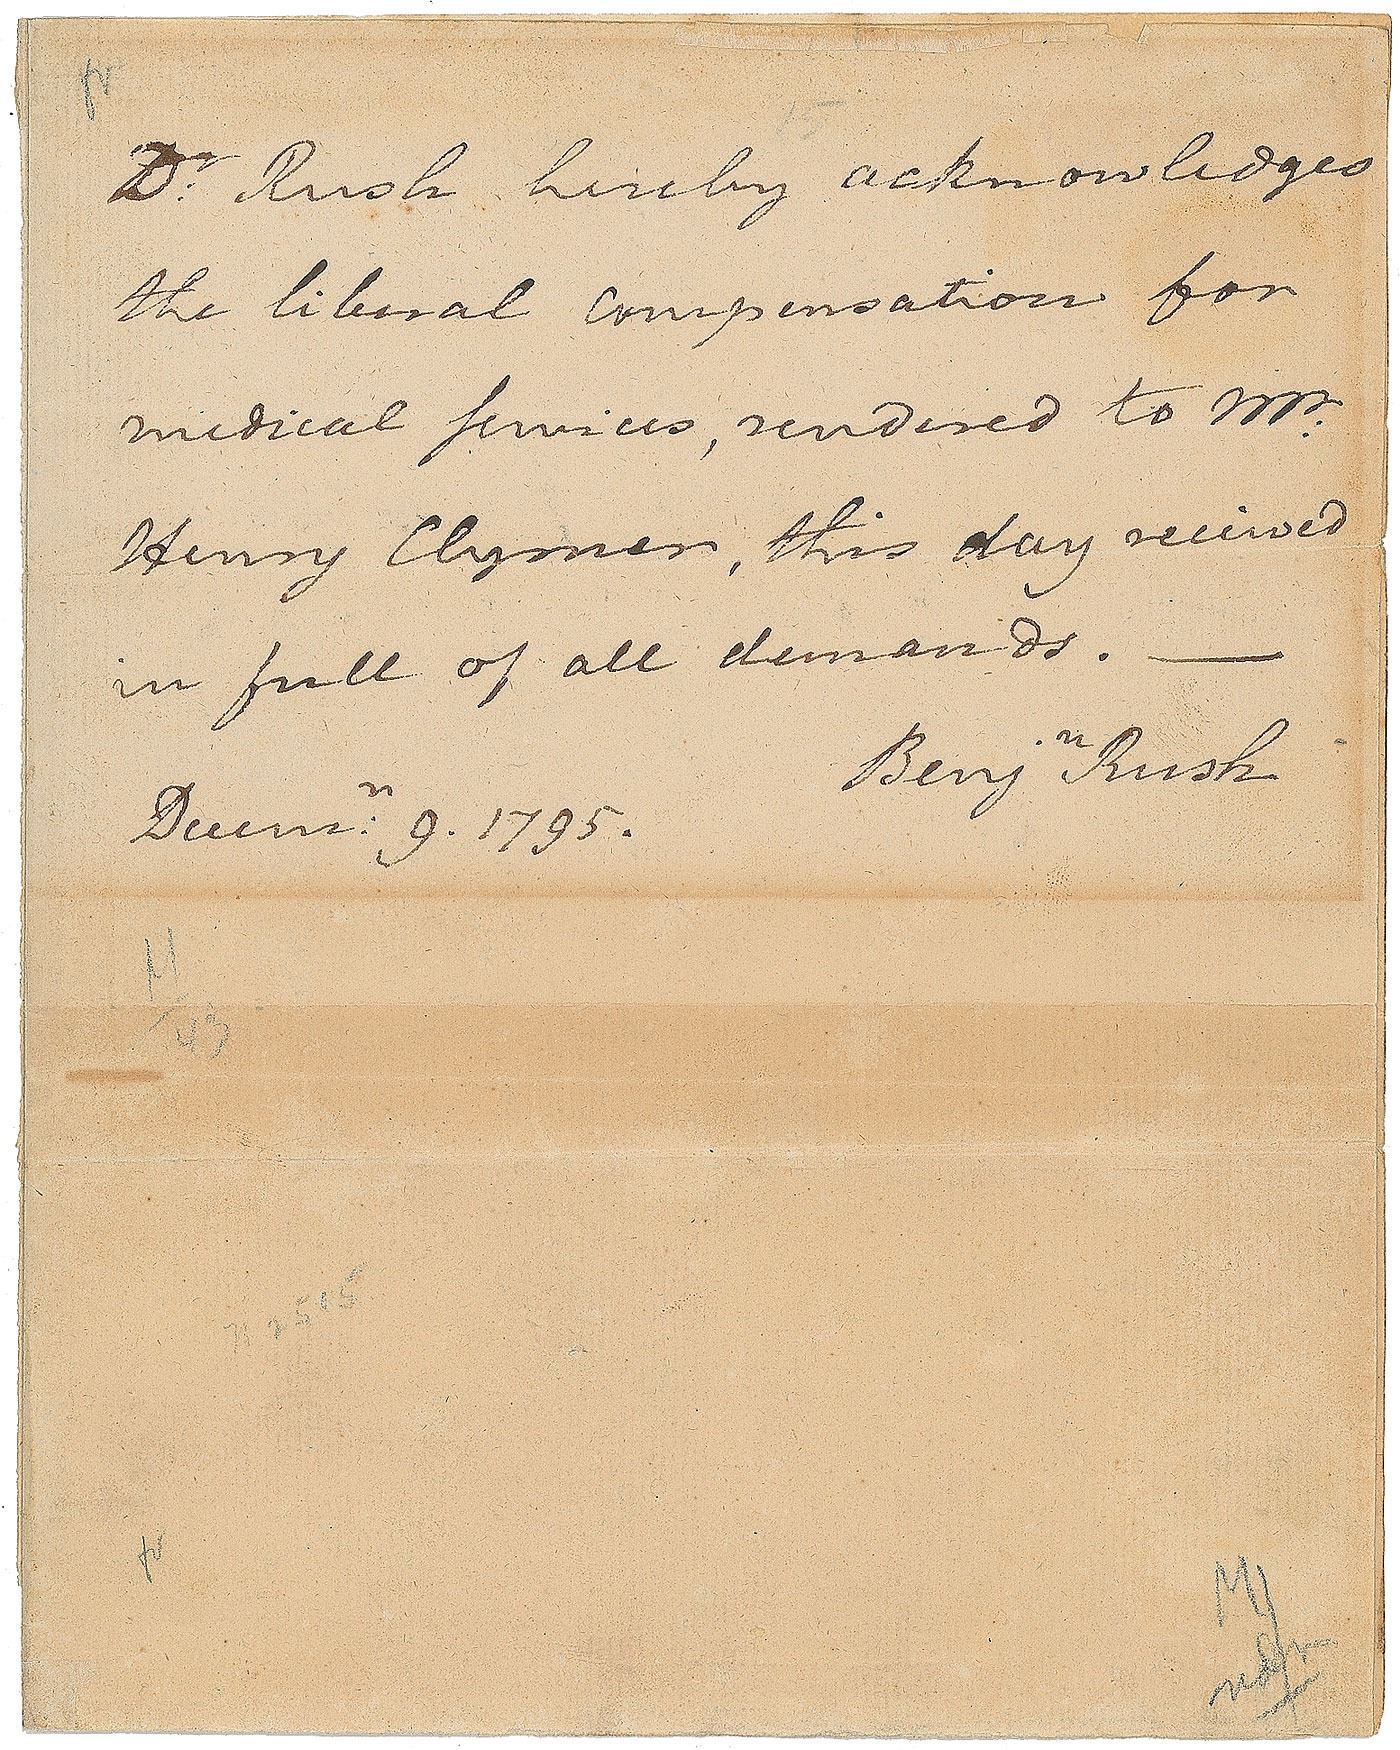 Dr. Rush hereby acknowledges
the liberal compensation for
medical services, rendered to Mr.
Henry Clymer, this day received
in full of all demands. —
Benjn Rush
Decemr: 9. 1795.